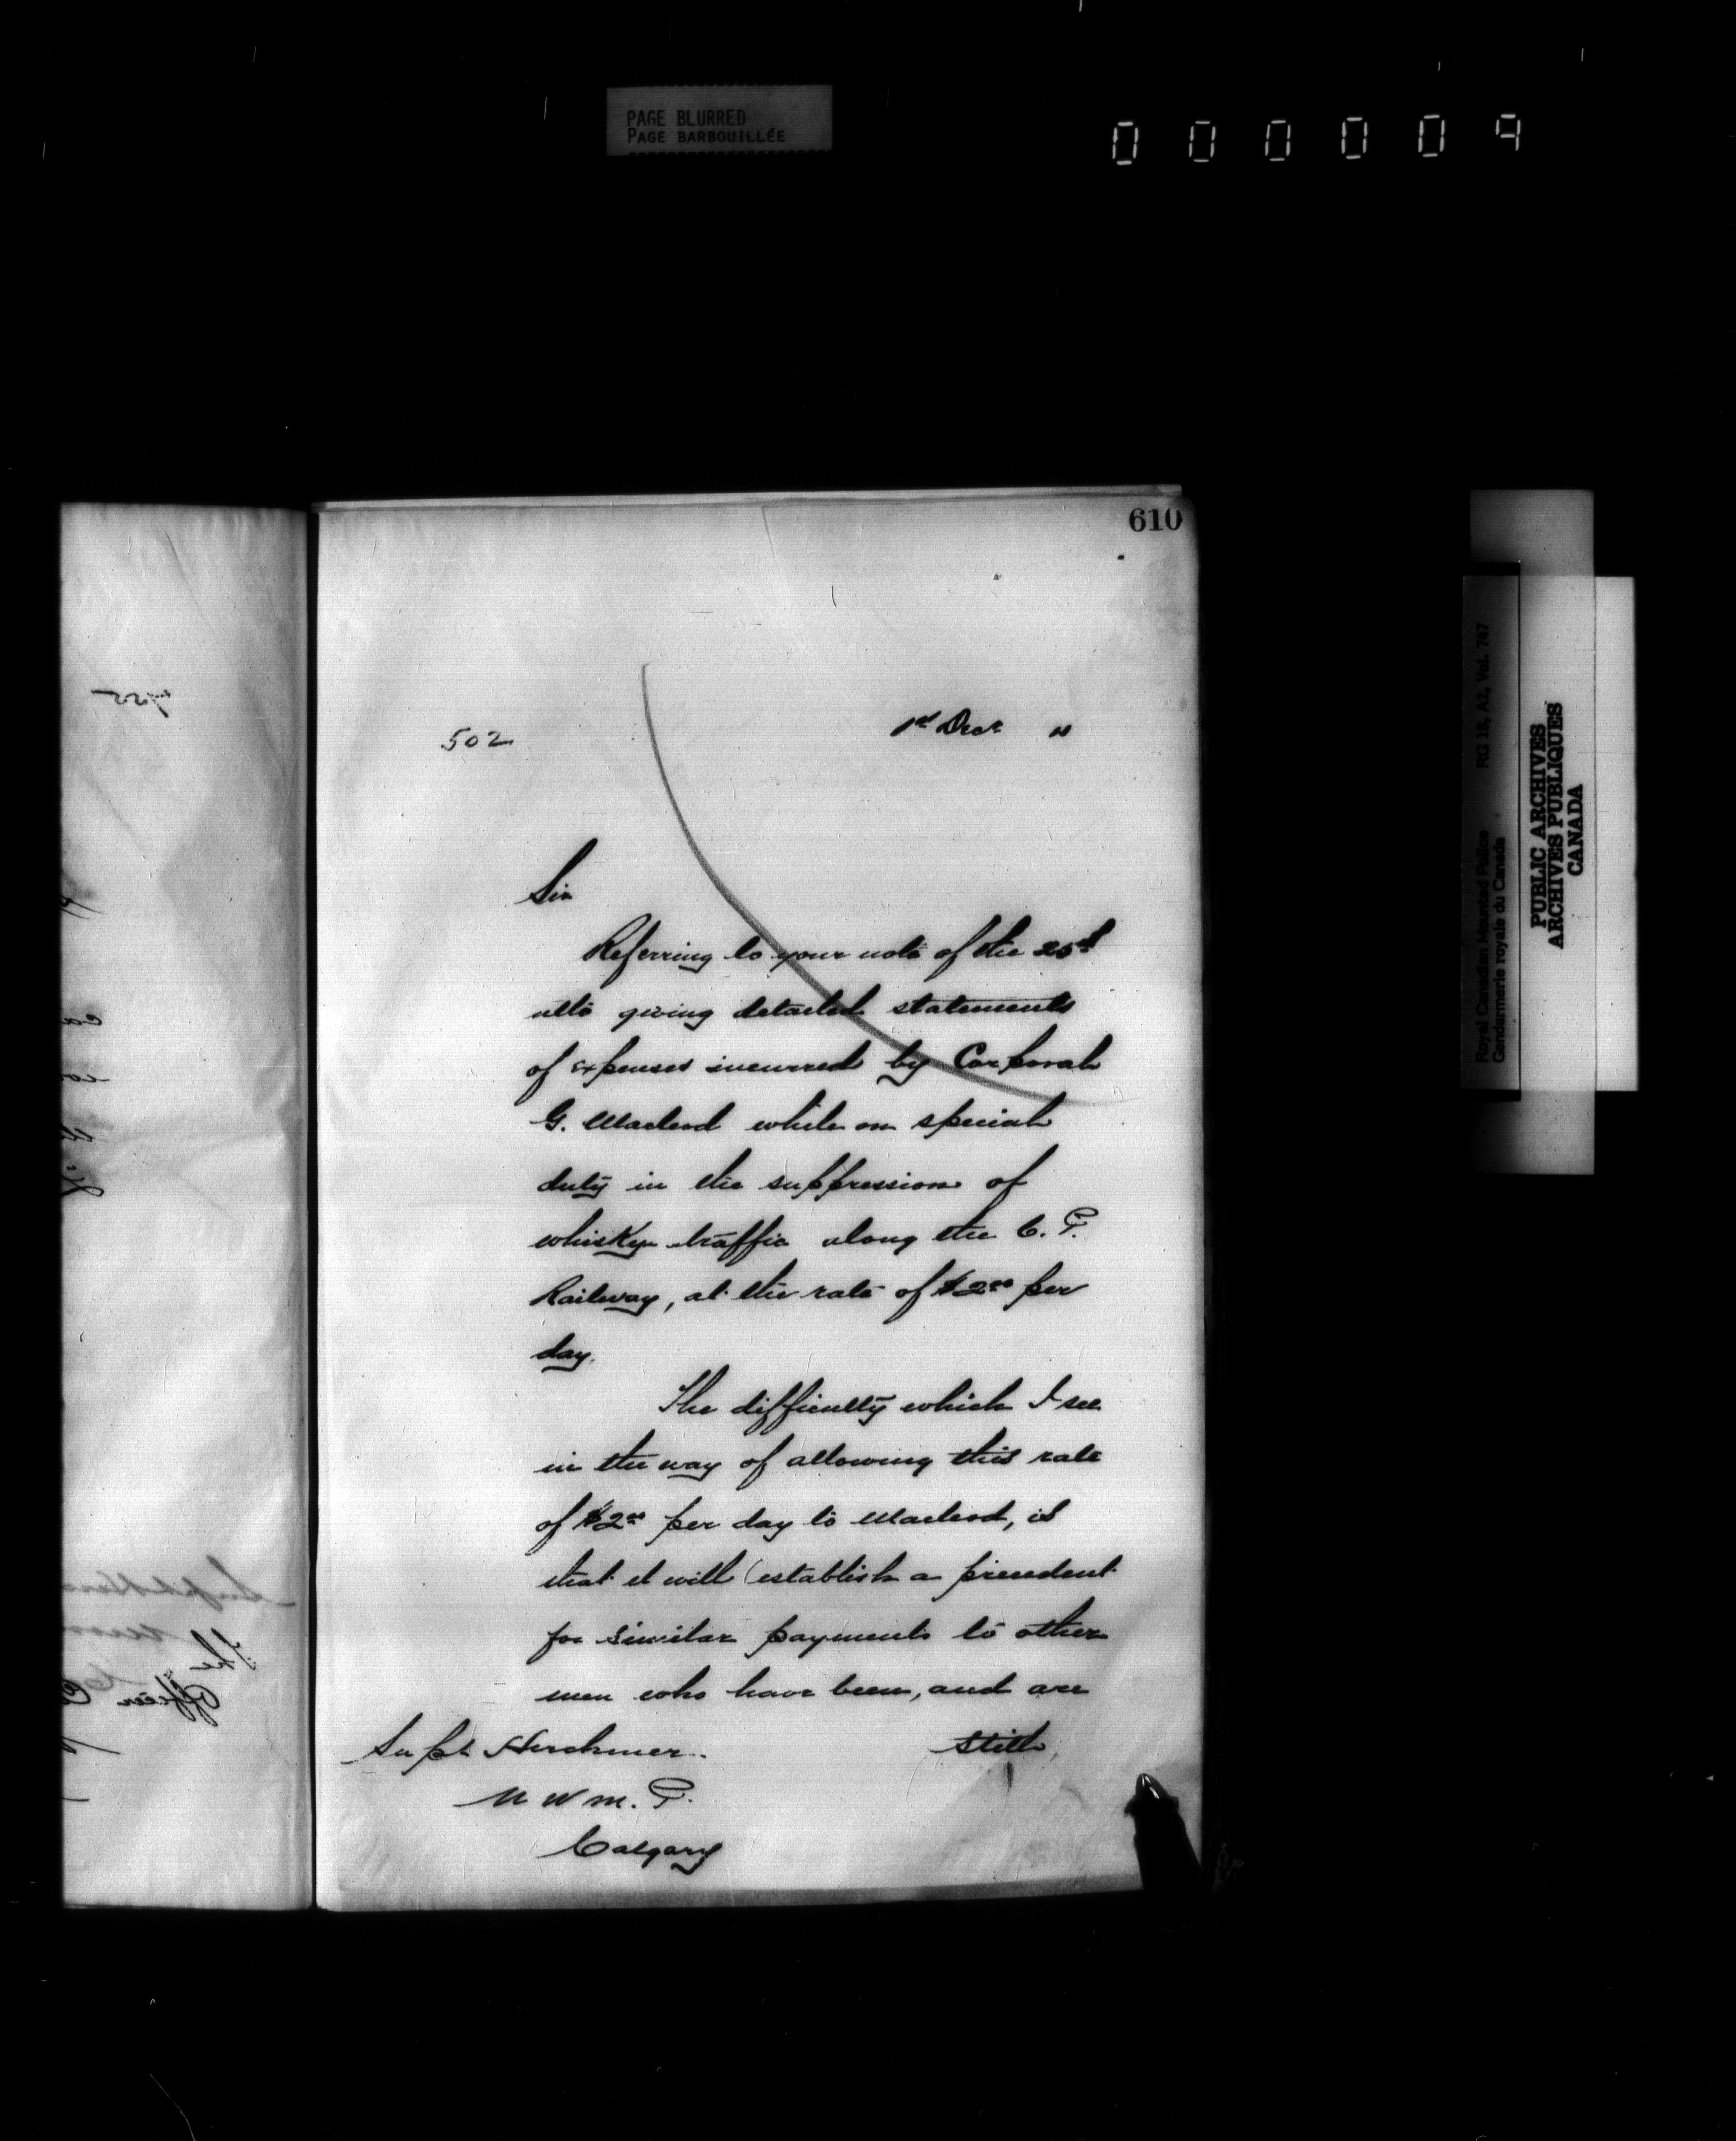 PAGE BLURRED
PAGE BARBOUILLÉE
0 0 0 0 0 9
610
502
1st Decr
Sir
Referring to your note of the 25th
ulto giving detailed statements
of expenses incurred by Corporal
G. Macleod while on special
duty in the suppression of
whisky traffic along the C. P.
Railway, at the rate of $2.00 per
day.
The difficulty which I see
in the way of allowing this rate
of $2.00 per day to Macleod, is
that it will establish a precedent
for similar payments to other
men who have been, and are
still
Supt Herchmer.
N W M. P.
Calgary
The
Officer C
Royal Canadian Mounted Police RG 18, A2, Vol. 747
Gendarmerie royale du Canada
PUBLIC ARCHIVES
ARCHIVES PUBLIQUES
CANADA